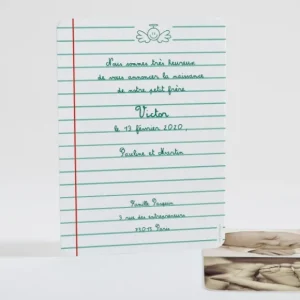 Nous sommes très heureux
de vous annoncer la naissance
de notre petit frère
Victor
le 13 février 2020,
Pauline et Martin
Famille Parisien
3 rue des entrepreneurs
75015 Paris